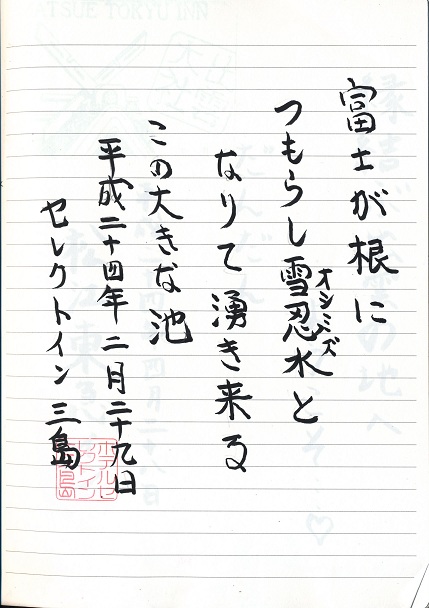 富士が根に
つもらし雪忍水と
オシミズ
なりて湧き来る
この大きな池
平成二十四年二月二十九日
セレクトイン三島
ATSUE TOKYU INN